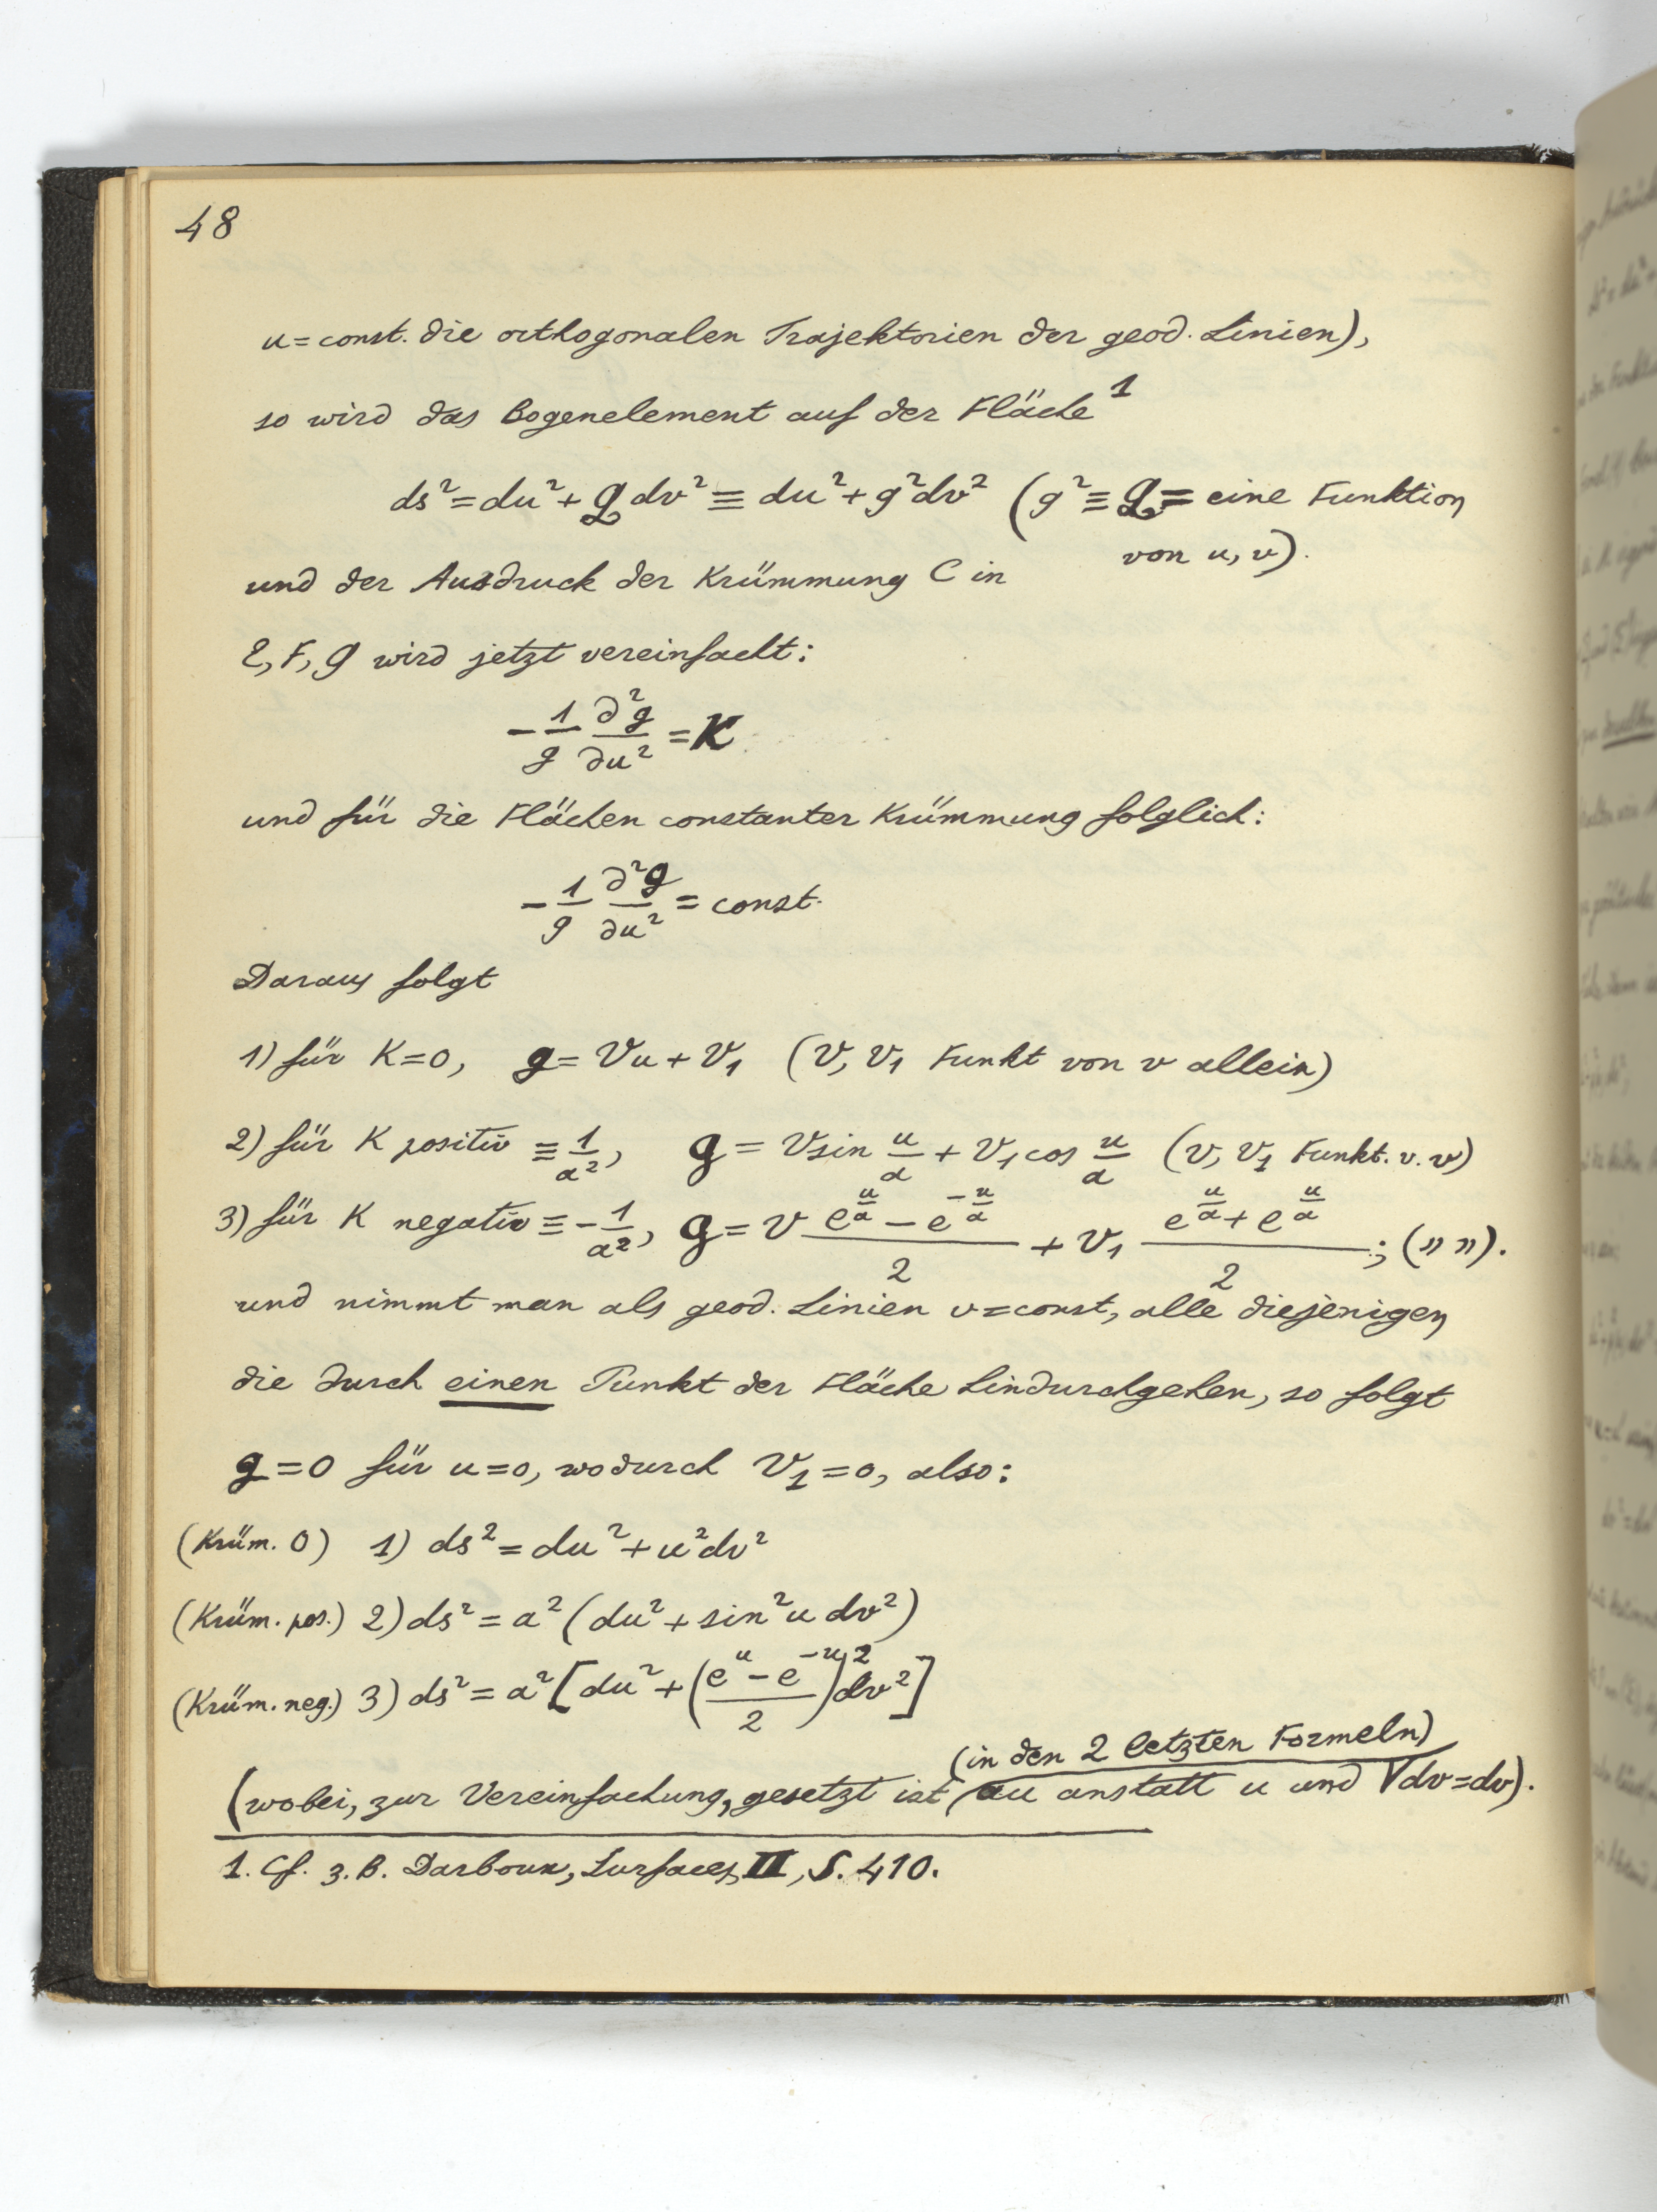 48
u = const. die orthogonalen Trajektorien der geod. Linien),
so wird das Bogenelement auf der Fläche¹
ds² = du² + G dv² ≡ du² + g² dv² (g² ≡ G = eine Funktion
von u, v).
und der Ausdruck der Krümmung C in
E, F, G wird jetzt vereinfacht:
- 1/g ∂²g/∂u² = K
und für die Flächen constanter Krümmung folglich:
- 1/g ∂²g/∂u² = const.
Daraus folgt
1) für K = 0, g = Vu + V₁ (V, V₁ Funkt von v allein)
2) für K positiv ≡ 1/a², g = V sin u/a + V₁ cos u/a (V, V₁ Funkt. v. v)
3) für K negativ ≡ - 1/a², g = V (e^(u/a) - e^(-u/a))/2 + V₁ (e^(u/a) + e^(u/a))/2; (" ").
und nimmt man als geod. Linien v = const, alle diejenigen
die durch einen Punkt der Fläche hindurchgehen, so folgt
g = 0 für u = 0, wodurch V₁ = 0, also:
(Krüm. 0) 1) ds² = du² + u² dv²
(Krüm. pos.) 2) ds² = a² (du² + sin² u dv²)
(Krüm. neg.) 3) ds² = a² [du² + ((e^u - e^(-u))/2)² dv²]
(in den 2 letzten Formeln)
(wobei, zur Vereinfachung, gesetzt ist au anstatt u und Vdv = dv).
1. Cf. z. B. Darboux, Surfaces, II, S. 410.